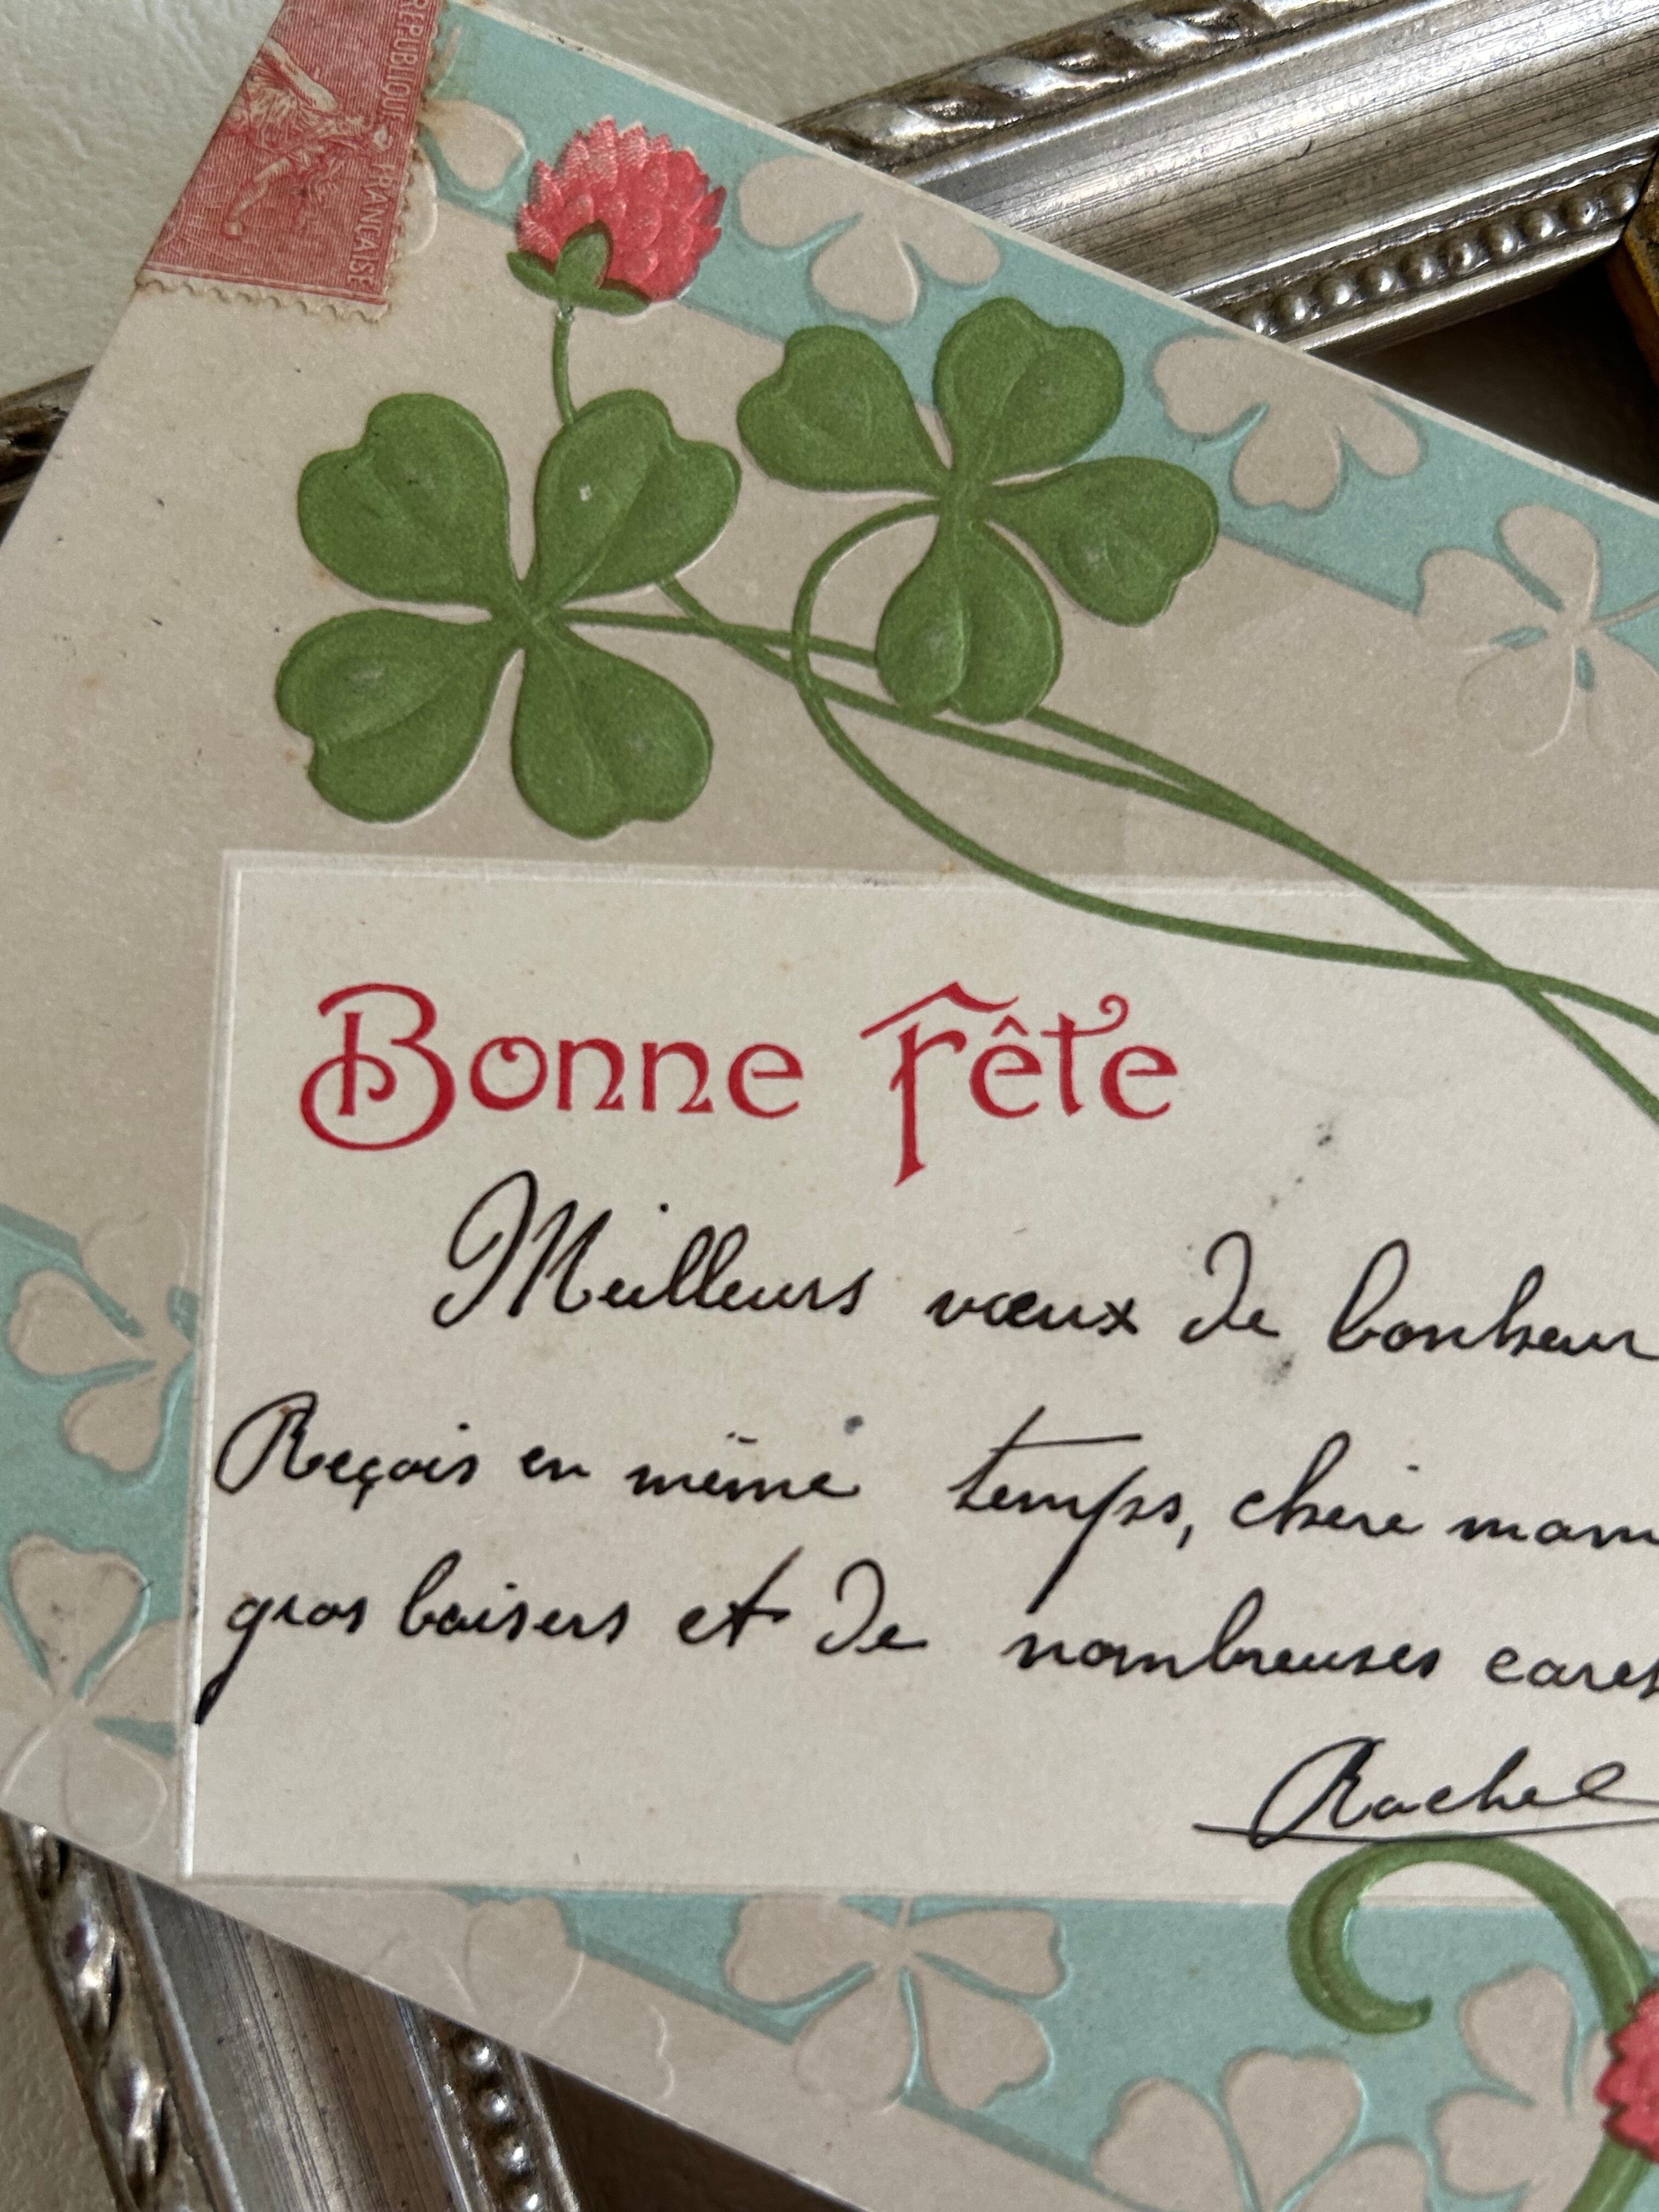 REPUBLIQUE FRANCAISE
Bonne Fête
Meilleurs vœux de bonheur
Reçois en même temps, chère mam
gros baisers et de nombreuses cares
Rachel